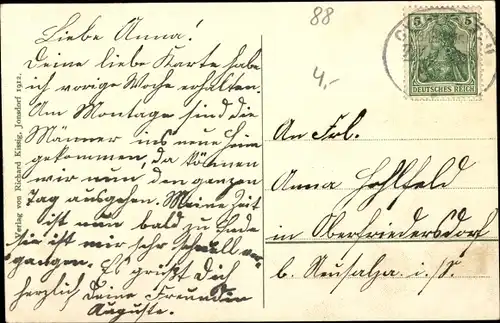 Liebe Anna!
Deine liebe Karte habe
ich vorige Woche erhalten.
Am Montage sind die
Männer ins neue Heim
gekommen, da können
wir nun den ganzen
Tag ausgehen. Meine Zeit
ist nun bald zu Ende
sie ist mir sehr schnell ver-
gangen. Es grüßt Dich
herzlich Deine Freundin
Auguste.
Verlag von Richard Kissig, Jonsdorf 1912.
88
4,-
5 5
DEUTSCHES REICH
An Frl.
Anna Hohlfeld
in Oberfriedersdorf
b. Neusalza i./S.